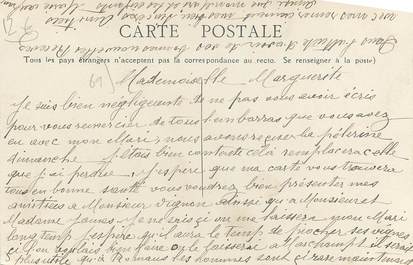 CARTE POSTALE
Tous les pays étrangers n'acceptent pas la correspondance au recto. Se renseigner à la poste)
69
Mademoiselle Marguerite
Je suis bien négligeante de ne pas vous avoir écris
pour vous remercier de tous embarras que vous avez
eu avec mon Mari, nous avons reçu la pèlerine
dimanche. J'étais bien contente cela remplacera celle
que j'ai perdue. J'espère que ma carte vous trouvera
tous en bonne santé vous voudrez bien présenter mes
amitiées à Monsieur Vignon ainsi qu'à Monsieur et
Madame James. Je ne sais si on me laissera mon Mari
long temp j'espère qu'il aura le temp de piocher ses vignes
si l'on voulais bien faire on le laisserai à Marchampt il serais
plus utile qu'à Romans les hommes sont si rare maintenant